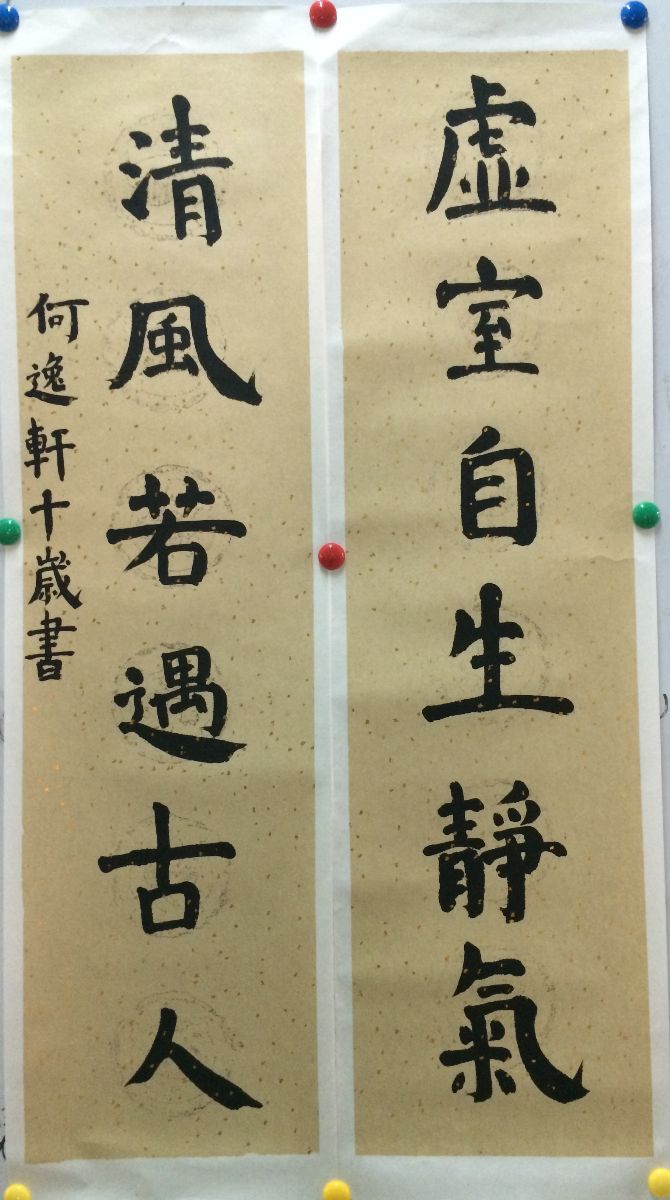 虚室自生靜氣
清風若遇古人
何逸軒十歲書